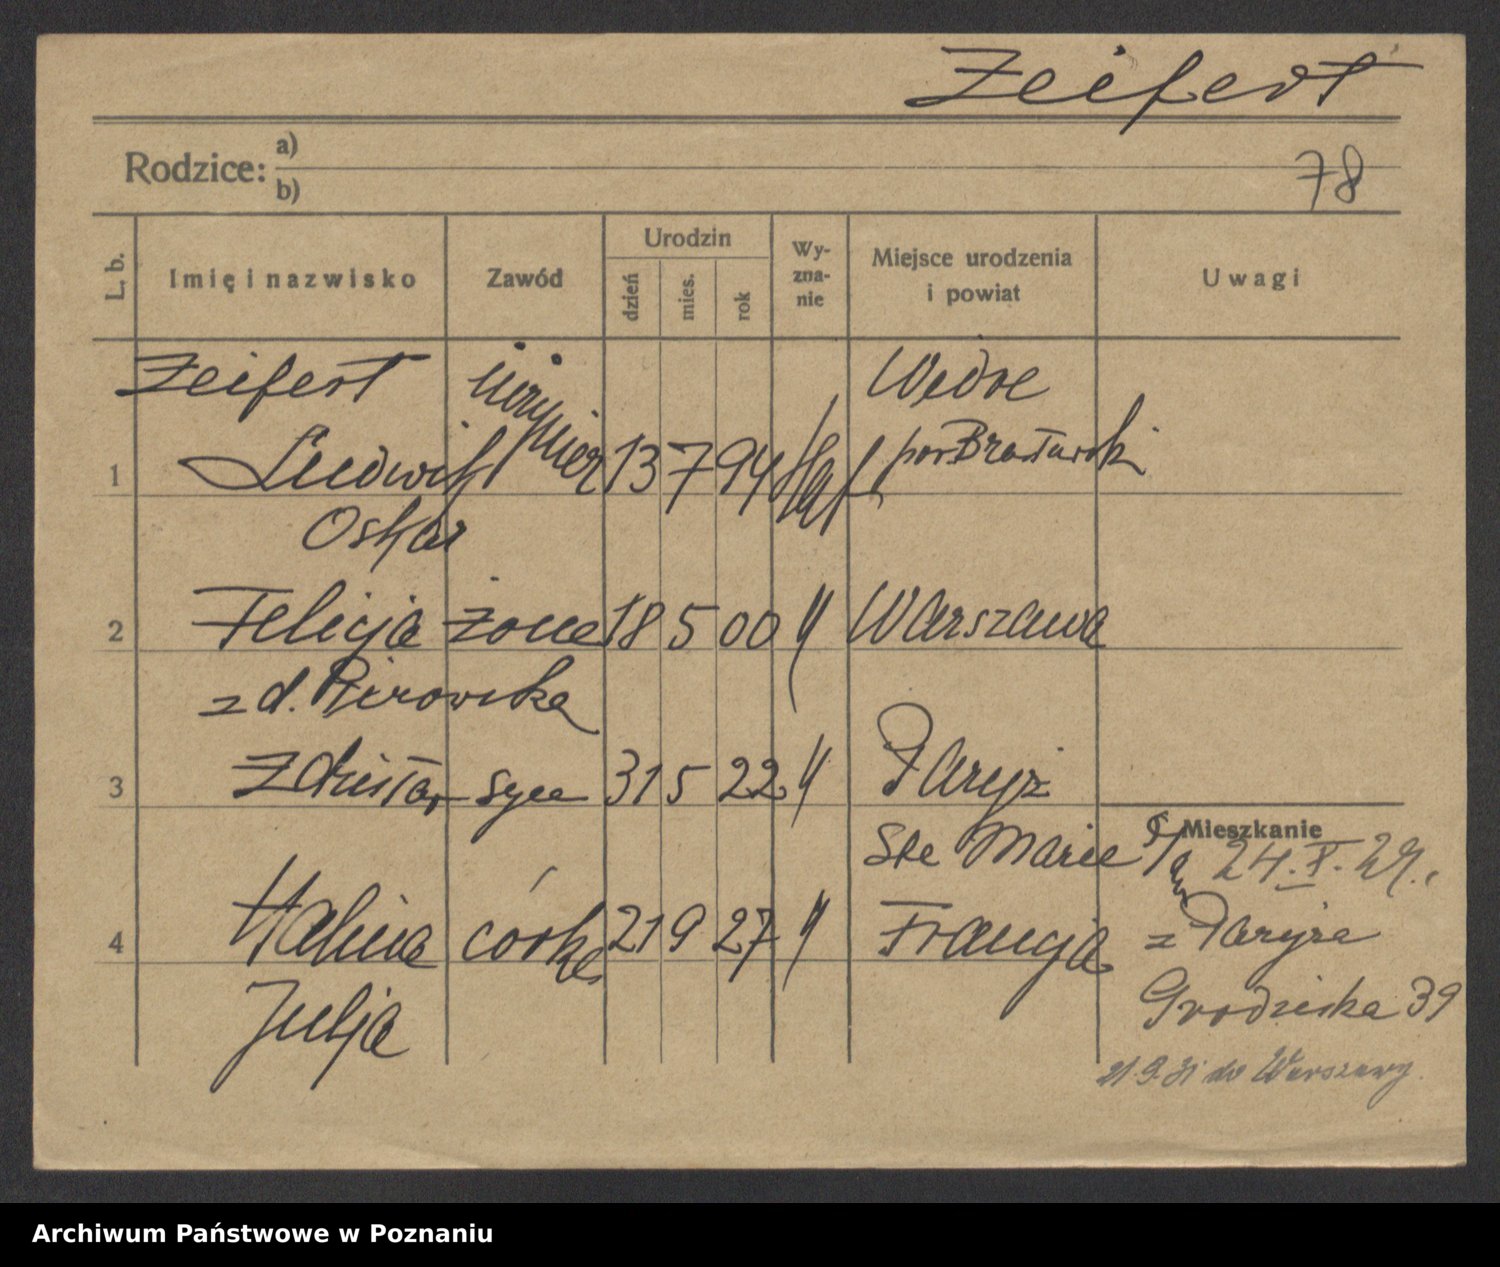 Zeifert
Rodzice: a)
b)
78
L. b. Imię i nazwisko Zawód Urodzin dzień mies. rok Wyznanie Miejsce urodzenia i powiat Uwagi
Zeifert inżynier
1 Ludwik 13 7 94
Oskar
2 Felicja żona 18 5 00 " Warszawa
z d.
3 Zdzisław syn 31 5 22 " Paryż
Ste Marie
4 Halina córka 21 9 27 " Francja
Julja
Mieszkanie
24.X.29.
z Paryża
Grodziska 39
21.9.31 do Warszawy.
Archiwum Państwowe w Poznaniu